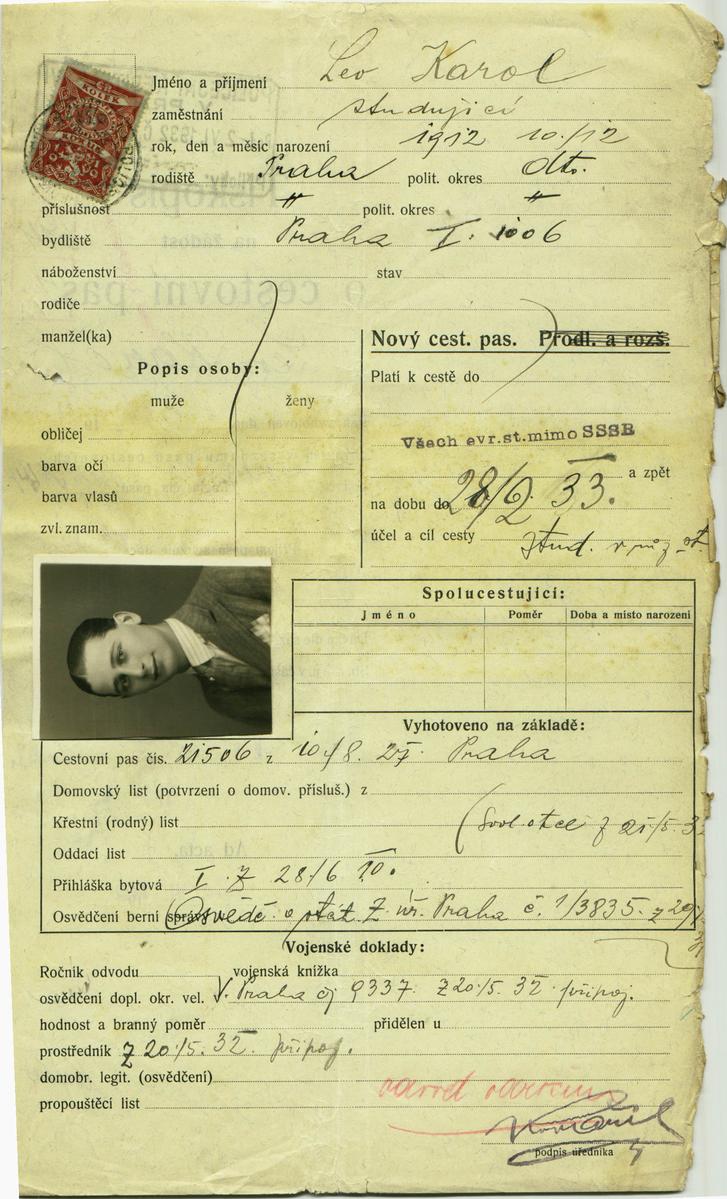 Jméno a příjmení Leo Karol
zaměstnání studující
rok, den a měsíc narození 1912 10./12
rodiště Praha polit. okres dto.
příslušnost " polit. okres "
bydliště Praha I. 1006
náboženství stav
rodiče
manžel(ka)
Popis osoby:
muže ženy
obličej
barva očí
barva vlasů
zvl. znam.
Nový cest. pas. Prodl. a rozš.
Platí k cestě do
Všech evr.st.mimo SSSR
a zpět
na dobu do 28/2 33.
účel a cíl cesty stud.
Spolucestující:
Jméno Poměr Doba a místo narození
Vyhotoveno na základě:
Cestovní pas čís. 21506 z 10/8. 27. Praha
Domovský list (potvrzení o domov. přísluš.) z
Křestní (rodný) list (Svol. otce z 21/5. 32
Oddací list
Přihláška bytová I. z 28/6 10.
Osvědčení berní správy Osvědč. o stát. z úř. Praha č. 1/3835. z 20/
Vojenské doklady:
Ročník odvodu vojenská knížka
osvědčení dopl. okr. vel. V. Praha čj 9337 z 20./5. 32 připoj.
hodnost a branný poměr přidělen u
prostředník z 20./5. 32. připoj.
domobr. legit. (osvědčení)
propouštěcí list
podpis úředníka